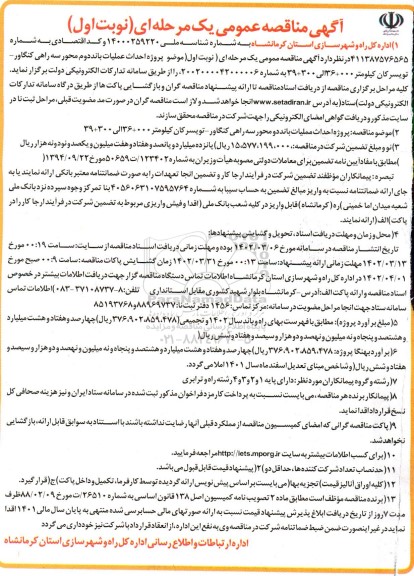 آگهی مناقصه عمومی یک مرحله ای (نوبت اول)
۱) اداره کل راه و شهرسازی استان کرمانشاه به شماره شناسه ملی ۱۴۰۰۰۲۵۹۲۲۰ و کد اقتصادی به شماره
۴۱۱۳۸۷۵۷۶۵۶۵ در نظر دارد آگهی مناقصه عمومی یک مرحله ای (نوبت اول) موضوع پروژه احداث عملیات باند دوم محور سه راهی کنگاور-
تویسرکان کیلومتر ۰۰۰+۳۶ الی ۳۰۰+۳۹ به شماره ۲۰۰۴۰۰۰۰۴۳۰۰۰۰۰۶ را از طریق سامانه تدارکات الکترونیکی دولت برگزار نماید.
کلیه مراحل برگزاری مناقصه از دریافت اسناد مناقصه تا ارائه پیشنهاد مناقصه گران و بازگشایی پاکت ها از طریق درگاه سامانه تدارکات
الکترونیکی دولت (ستاد) به آدرس www.setadiran.ir انجام خواهد شد و لازم است مناقصه گران در صورت مدضویت قبلی، مراحل ثبت نام در
سایت مذکور و دریافت گواهی امضای الکترونیکی را جهت شرکت در مناقصه محقق سازند.
۲) موضوع مناقصه: پروژه احداث عملیات باند دو محور سه راهی کنگاور - تویسرکان کیلومتر ۰۰۰+۳۶ الی ۳۰۰+۳۹
۳) نوع و مبلغ تضمین شرکت در مناقصه: ۱۵،۵۷۷،۱۹۹،۰۰۰ ریال (پانزده میلیارد و پانصد و هفتاد و هفت میلیون و یکصد و نود و نه هزار ریال
) مطابق با مفاد آیین نامه تضمین برای معاملات دولتی مصوبه هیات وزیران به شماره ۱۲۳۴۰۲/ت ۵۰۶۵۹ ه مورخ ۱۳۹۴/۰۹/۲۲)
تبصره: پیمانکاران موظفند تضمین شرکت در فرایند ارجاع کار و تضمین انجام تعهدات را به صورت ضمانتنامه معتبر بانکی ارائه نمایند یا به
جای ارائه ضمانتنامه نسبت به واریز مبالغ تضمین به حساب سیبا به شماره ۴۰۵۶۰۶۳۱۰۷۵۹۵۷۶۴ بنا تمرکز وجوه سپرده نزد بانک ملی
شعبه میدان امام خمینی (ره) (کرمانشاه) قابل واریز در کلیه شعب بانک ملی (اقدام) و فیش واریزی مربوط به تضمین شرکت در فرایند ارجاع کار را در
پاکت (الف) ارائه نمایند.
۴) محل و زمان و مهلت دریافت اسناد، تحویل و گشایش پیشنهادها:
تاریخ انتشار مناقصه در سامانه مورخ ۱۴۰۴/۰۳/۰۶ بوده و مهلت زمانی دریافت اسناد مناقصه از سایت: ساعت ۰۰:۱۹ مورخ
۱۴۰۴/۰۳/۱۲ مهلت زمانی ارائه پیشنهاد: ساعت ۰۰:۱۳ مورخ ۱۴۰۴/۰۳/۳۱ زمان گشایش پاکات مناقصه: ساعت ۰۰:۹ صبح مورخ
۱۴۰۴/۰۴/۰۱ در اداره کل راه و شهرسازی استان کرمانشاه اطلاعات تماس دستگاه مناقصه گزار جهت دریافت اطلاعات بیشتر در خصوص
اسناد مناقصه و ارائه پاکت الف: آدرس - کرمانشاه بلوار شهید کشوری مقابل استانداری تلفن: ۸-۳۷۱۰۸۷۳۷-۰۸۳ اطلاعات تماس
سامانه ستاد جهت انجام مراحل عضویت در سامانه: مرکز تماس: ۱۴۵۶ دفتر ثبت نام: ۸۸۹۶۹۷۳۷ و ۸۵۱۹۳۷۶۸
۵) مبلغ برآورد پروژه): مطابق با فهرست بهای راه و باند سال ۱۴۰۴ و تجمیعی (۳۷۶،۹۰۲،۸۵۹،۴۷۸ ریال) چهارصد و هفتاد و هشت میلیارد
و هشتصد و پنجاه و نه میلیون و نهصد و دو هزار و سیصد و هفتاد و شش ریال)
۶) برآورد بهنگام پروژه: ۳۷۶،۹۰۲،۸۵۹،۴۷۸ ریال) چهارصد و هفتاد و هشت میلیارد و هشتصد و پنجاه و نه میلیون و نهصد و دو هزار و سیصد و
هفتاد و شش ریال) و شاخص مبنای تعدیل اسفند ماه سال ۱۴۰۱ اعلامی گردد.
۷) رشته و گروه پیمانکاران مورد نظر: دارای پایه ۱ و ۲ و ۳ و ۴ رشته راه و ترابری
۸) پیمانکار برنده هر مناقصه، می بایست نسبت به پرداخت کارمزد فراخوان مذکور ثبت شده در سامانه ستاد ایران و نیز هزینه صحافی کل
نسخ قرارداد اقدام نماید.
۹) پاکت مناقصه گرانی که اعضای کمیسیون مناقصه از عملکرد قبلی آنها رضایت نداشته باشند با استناد به سوابق قابل ارائه، بازگشایی
نخواهد شد.
۱۰) برای کسب اطلاعات بیشتر به سایت http://iets.mporg.ir مراجعه فرمایید.
۱۱) حد نصاب تعداد شرکت کننده ها، حداقل دو (۲) پیشنهاد قیمت قابل قبول می باشد.
۱۲) کلیه اوراق (آنالیز قیمت) تجزیه بها) می بایست بر اساس پیش نویس ارائه گردیده توسط کارفرما، تکمیل و داخل پاکت (ج) قرار گیرد.
۱۳) برنده مناقصه موظف است مطابق ماده ۲ تصویب نامه کمیسیون اصل ۱۳۸ قانون اساسی به شماره ۲۶۵۱۰/ت مورخ ۸۸/۰۲/۰۹ ظرف
مدت ۷ روز از تاریخ دریافت ابلاغ پذیرش پیشنهاد قیمت نسبت به ارائه صورتهای مالی حسابرسی شده منتهی به پایان سال مالی ۱۴۰۱ اقدام
نماید در غیر اینصورت ضمن ضبط ضمانتنامه شرکت در مناقصه وی به نفع این اداره، از انعقاد قرارداد با شرکت نیز خودداری می گردد
اداره ارتباطات و اطلاع رسانی اداره کل راه و شهرسازی استان کرمانشاه